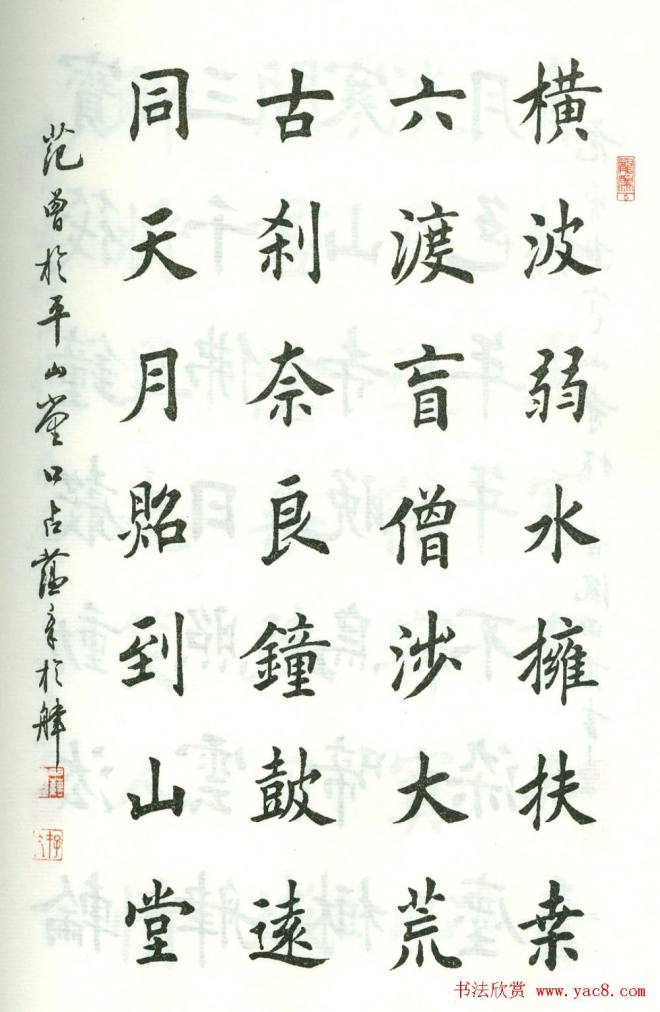 橫波弱水擁扶桒
六渡盲僧涉大荒
古刹奈良鐘鼓遠
同天月照到山堂
范曾於平山堂口占
书法欣赏 www.yac8.com